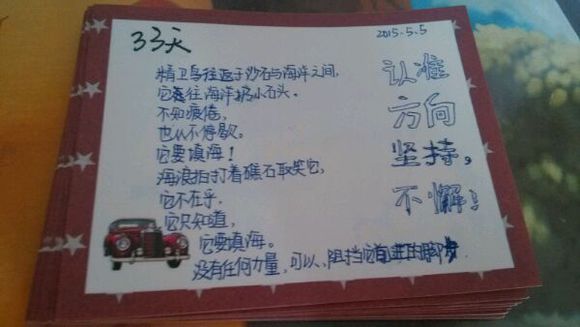 33天
2015.5.5
精卫鸟往返于沙石与海洋之间,
它往海洋掷小石头。
不知疲倦,
也从不停歇。
它要填海!
海浪拍打着礁石取笑它,
它不在乎,
它只知道,
它要填海。
没有任何力量,可以,阻挡它前进的脚步.
认准
方向
坚持,
不懈!